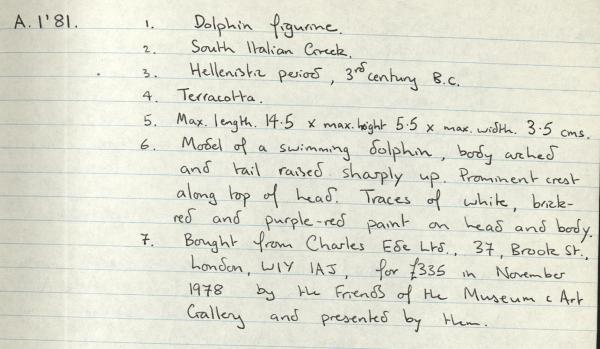 A. 1'81. 1. Dolphin figurine.
2. South Italian Greek.
3. Hellenistic period, 3rd century B.C.
4. Terracotta.
5. Max. length. 14.5 x max. height 5.5 x max. width. 3.5 cms.
6. Model of a swimming dolphin, body arched
and tail raised sharply up. Prominent crest
along top of head. Traces of white, brick-
red and purple-red paint on head and body.
7. Bought from Charles Ede Ltd., 37, Brook St.,
London, W1Y 1AJ, for £335 in November
1978 by the Friends of the Museum & Art
Gallery and presented by them.